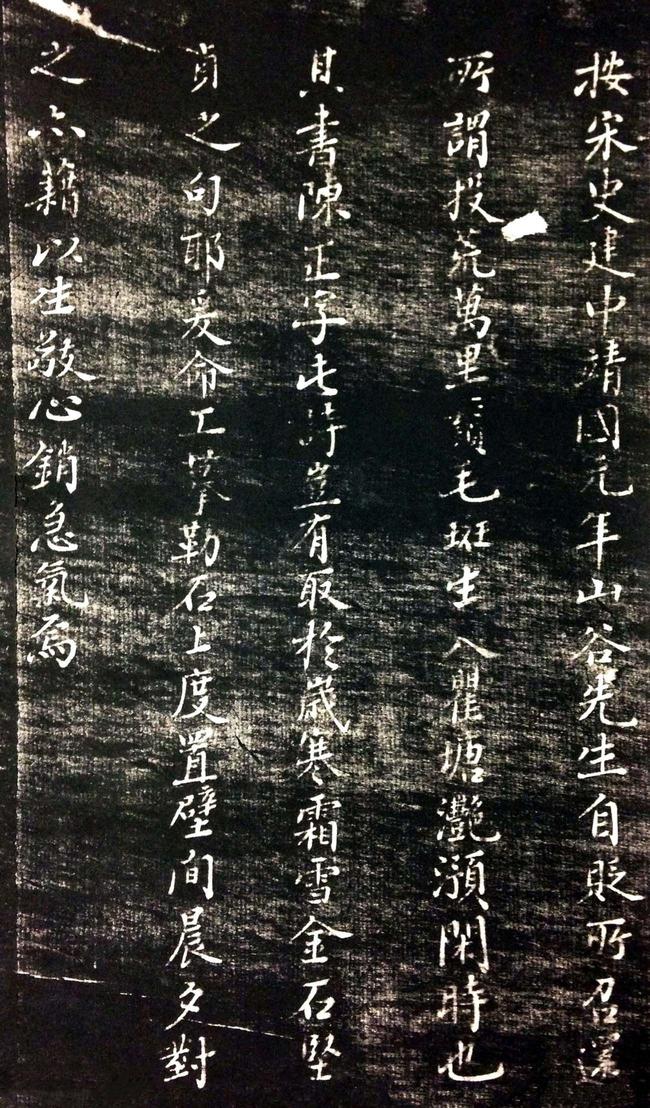 按宋史建中靖國元年山谷先生自貶所召還
所謂投荒萬里鬢毛斑生入瞿塘灩澦關時也
其書陳正字此詩豈有取於歲寒霜雪金石堅
貞之句耶爰命工摹勒石上度置壁間晨夕對
之亦藉以生敬心銷怠氣焉